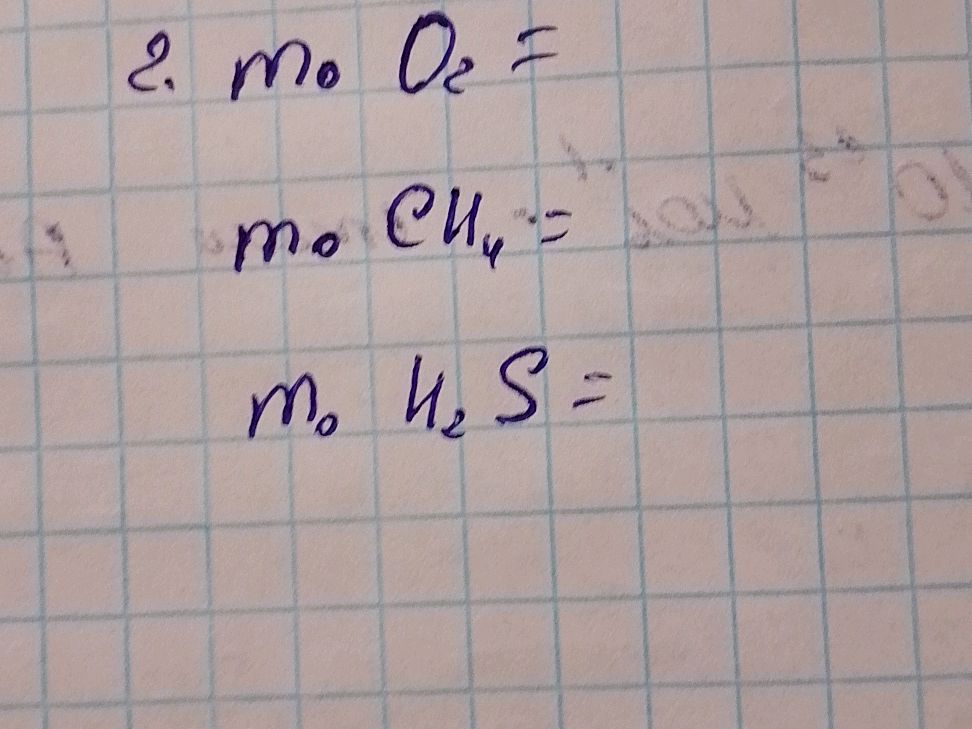 2. m₀ O₂ =
m₀ CH₄ =
m₀ H₂S =